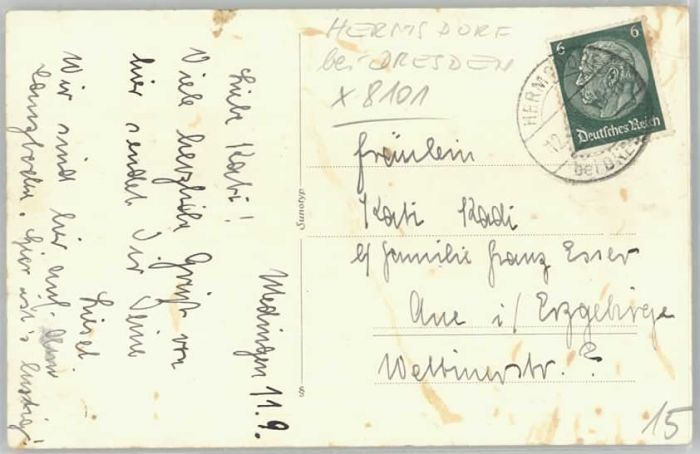 Medingen 11.9.
Liebe Kati!
Viele herzliche Grüße von
hier sendet Dir Deine
Liesel
Wir sind hier auf
hier ist's lustig!
HERMSDORF
bei DRESDEN
X 8101
6 6
Deutsches Reich
HERM
12.
bei DRE
Fräulein
Kati Kadi
b/ Familie Franz Esser
Aue i/ Erzgebirge
Wettinerstr. 2
Sunotyp
S
15